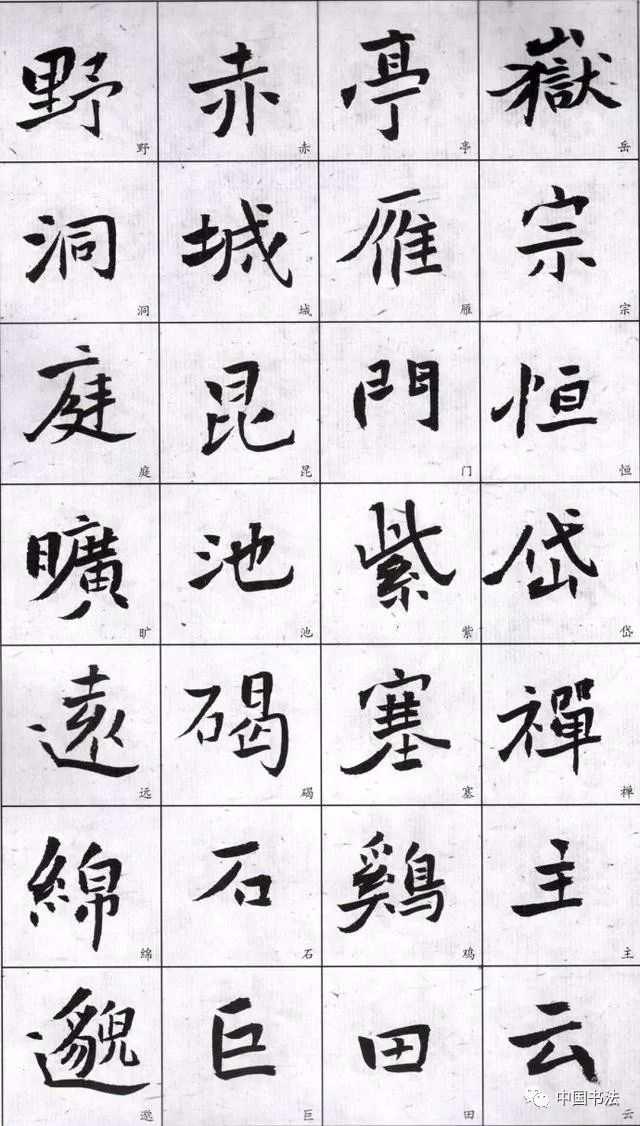 嶽宗恒岱禪主云
岳宗恒岱禅主云
亭雁門紫塞鷄田
亭雁门紫塞鸡田
赤城昆池碣石巨
赤城昆池碣石巨
野洞庭曠遠綿邈
野洞庭旷远绵邈
中国书法